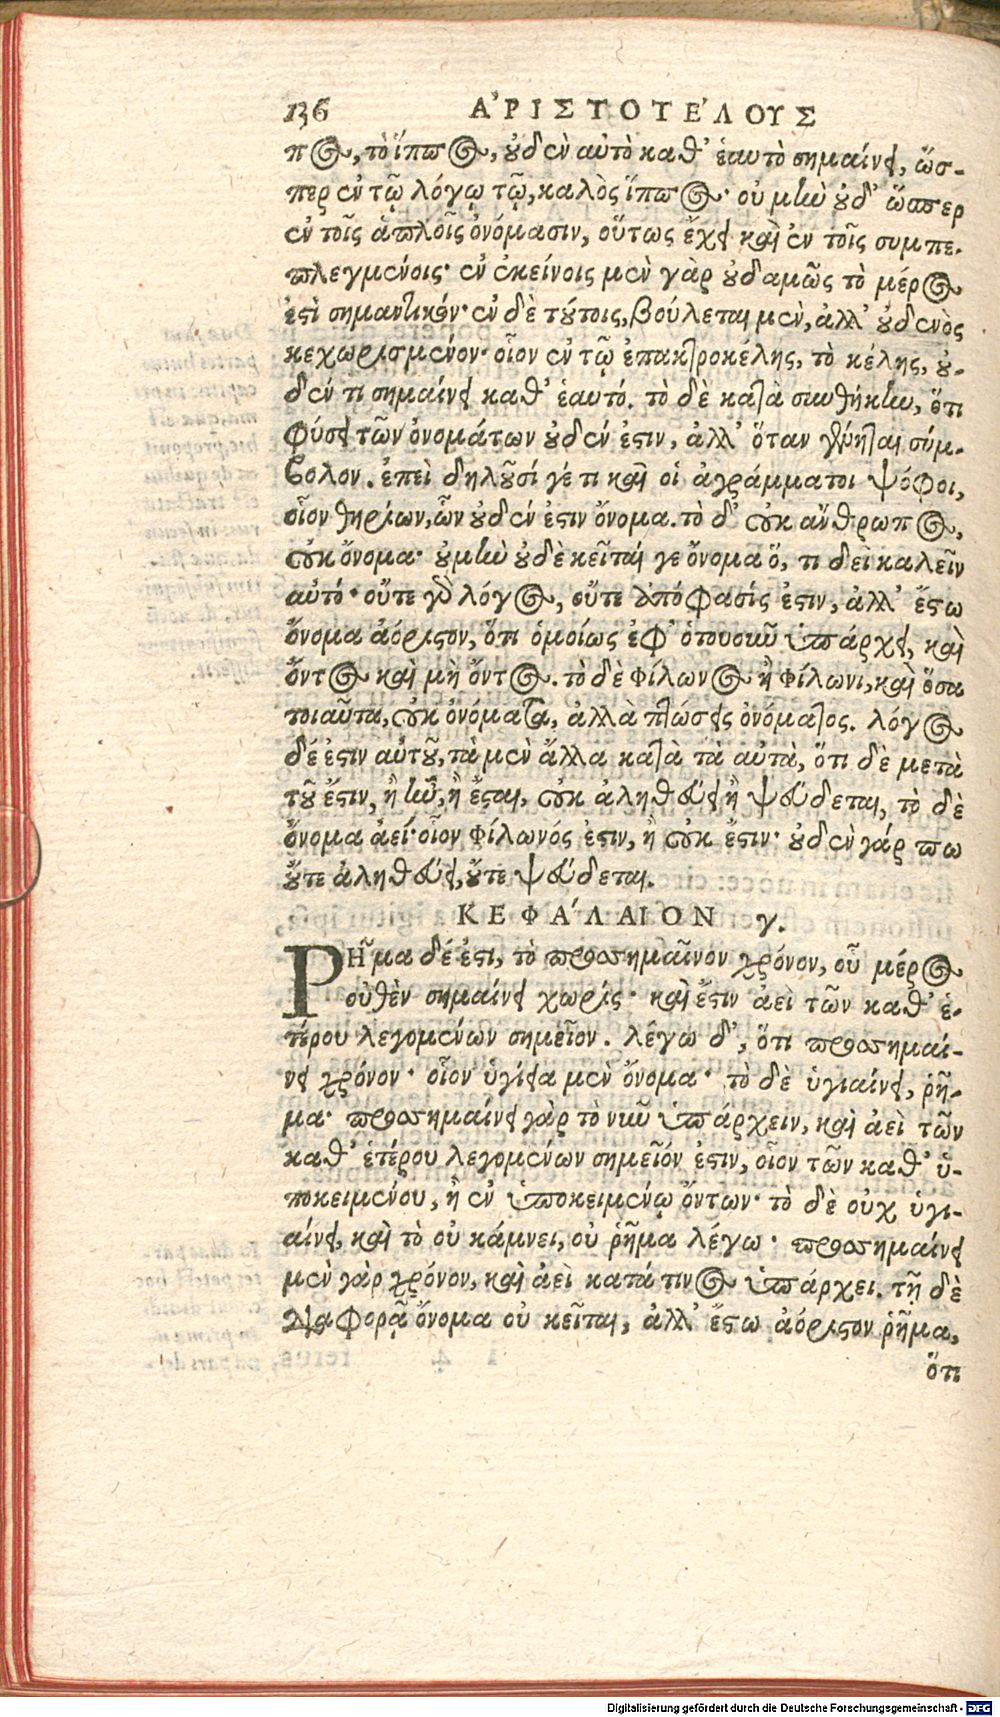 136 ἈΡΙΣΤΟΤΈΛΟΥΣ
πος, τὸ ἵππος, οὐδὲν αὐτὸ καθ’ ἑαυτὸ σημαίνει, ὥσ-
περ ἐν τῷ λόγῳ τῷ, καλὸς ἵππος· οὐ μὴν οὐδ’ ὥσπερ
ἐν τοῖς ἁπλοῖς ὀνόμασιν, οὕτως ἔχει καὶ ἐν τοῖς συμπε-
πλεγμένοις· ἐν ἐκείνοις μὲν γὰρ οὐδαμῶς τὸ μέρος
ἐστὶ σημαντικόν· ἐν δὲ τούτοις, βούλεται μὲν, ἀλλ’ οὐδενὸς
κεχωρισμένον· οἷον ἐν τῷ ἐπακτροκέλης, τὸ κέλης, οὐ-
δέν τι σημαίνει καθ’ ἑαυτό. τὸ δὲ κατὰ συνθήκην, ὅτι
φύσει τῶν ὀνομάτων οὐδέν ἐστιν, ἀλλ’ ὅταν γένηται σύμ-
βολον. ἐπεὶ δηλοῦσί γέ τι καὶ οἱ ἀγράμματοι ψόφοι,
οἷον θηρίων, ὧν οὐδέν ἐστιν ὄνομα. τὸ δ’ οὐκ ἄνθρωπος,
οὐκ ὄνομα· οὐ μὴν οὐδὲ κεῖταί γε ὄνομα ὅ, τι δεῖ καλεῖν
αὐτό· οὔτε γὰρ λόγος, οὔτε ἀπόφασίς ἐστιν, ἀλλ’ ἔστω
ὄνομα ἀόριστον, ὅτι ὁμοίως ἐφ’ ὁτουοῦν ὑπάρχει, καὶ
ὄντος καὶ μὴ ὄντος. τὸ δὲ Φίλωνος ἢ Φίλωνι, καὶ ὅσα
τοιαῦτα, οὐκ ὀνόματα, ἀλλὰ πτώσεις ὀνόματος. λόγος
δέ ἐστιν αὐτοῦ, τὰ μὲν ἄλλα κατὰ τὰ αὐτὰ, ὅτι δὲ μετὰ
τοῦ ἔστιν, ἢ ἦν, ἢ ἔσται, οὐκ ἀληθεύει ἢ ψεύδεται, τὸ δὲ
ὄνομα ἀεί· οἷον Φίλωνός ἐστιν, ἢ οὐκ ἔστιν· οὐδὲν γάρ πω
οὔτε ἀληθεύει, οὔτε ψεύδεται.
ΚΕΦΆΛΑΙΟΝ γ.
ΡΗ͂μα δέ ἐστι, τὸ προσσημαῖνον χρόνον, οὗ μέρος
οὐθὲν σημαίνει χωρίς· καὶ ἔστιν ἀεὶ τῶν καθ’ ἑ-
τέρου λεγομένων σημεῖον. λέγω δ’, ὅτι προσσημαί-
νει χρόνον· οἷον ὑγίεια μὲν ὄνομα· τὸ δὲ ὑγιαίνει, ῥῆ-
μα· προσσημαίνει γὰρ τὸ νῦν ὑπάρχειν, καὶ ἀεὶ τῶν
καθ’ ἑτέρου λεγομένων σημεῖόν ἐστιν, οἷον τῶν καθ’ ὑ-
ποκειμένου, ἢ ἐν ὑποκειμένῳ ὄντων· τὸ δὲ οὐχ ὑγι-
αίνει, καὶ τὸ οὐ κάμνει, οὐ ῥῆμα λέγω· προσσημαίνει
μὲν γὰρ χρόνον, καὶ ἀεὶ κατά τινος ὑπάρχει. τῇ δὲ
διαφορᾷ ὄνομα οὐ κεῖται, ἀλλ’ ἔστω ἀόριστον ῥῆμα,
ὅτι
Digitalisierung gefördert durch die Deutsche Forschungsgemeinschaft - DFG